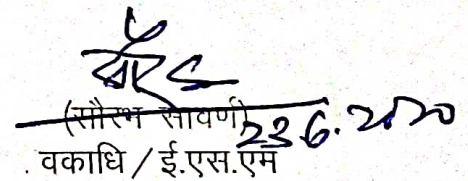 (सौरभ सावर्ण)
23.6.2020
वकाधि / ई.एस.एम